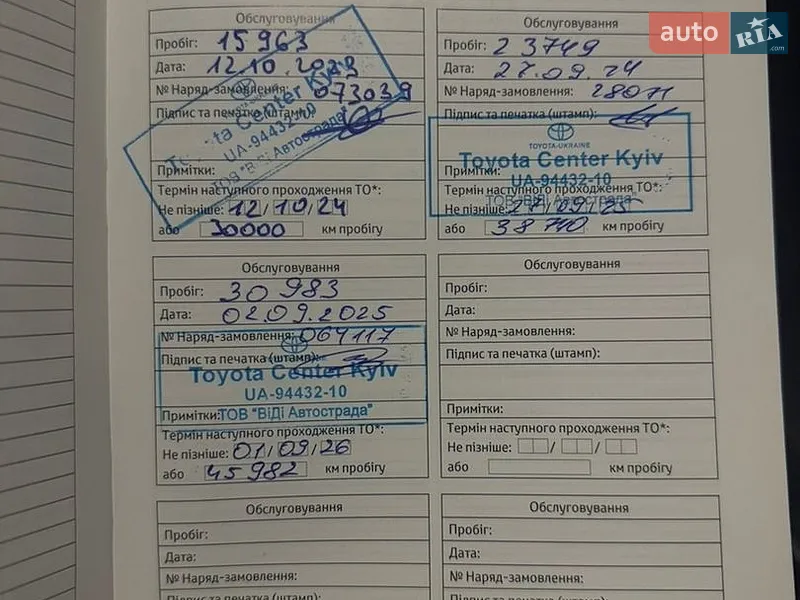 auto RIA .com
Обслуговування
Пробіг: 15 963
Дата: 12.10.2023
№ Наряд-замовлення: 073039
Підпис та печатка (штамп):
Toyota Center Kyiv
UA-94432-10
ТОВ "ВіДі Автострада"
Примітки:
Термін наступного проходження ТО*:
Не пізніше: 12/10/24
або 30000 км пробігу
Обслуговування
Пробіг: 23749
Дата: 27.09.24
№ Наряд-замовлення: 28011
Підпис та печатка (штамп):
TOYOTA-UKRAINE
Toyota Center Kyiv
UA-94432-10
ТОВ "ВіДі Автострада"
Примітки:
Термін наступного проходження ТО*:
Не пізніше: 27/09/25
або 38740 км пробігу
Обслуговування
Пробіг: 30 983
Дата: 02.09.2025
№ Наряд-замовлення: 064117
Підпис та печатка (штамп):
Toyota Center Kyiv
UA-94432-10
Примітки: ТОВ "ВіДі Автострада"
Термін наступного проходження ТО*:
Не пізніше: 01/09/26
або 45982 км пробігу
Обслуговування
Пробіг:
Дата:
№ Наряд-замовлення:
Підпис та печатка (штамп):
Примітки:
Термін наступного проходження ТО*:
Не пізніше: / /
або км пробігу
Обслуговування
Пробіг:
Дата:
№ Наряд-замовлення:
Підпис та печатка (штамп):
Обслуговування
Пробіг:
Дата:
№ Наряд-замовлення:
Підпис та печатка (штамп):